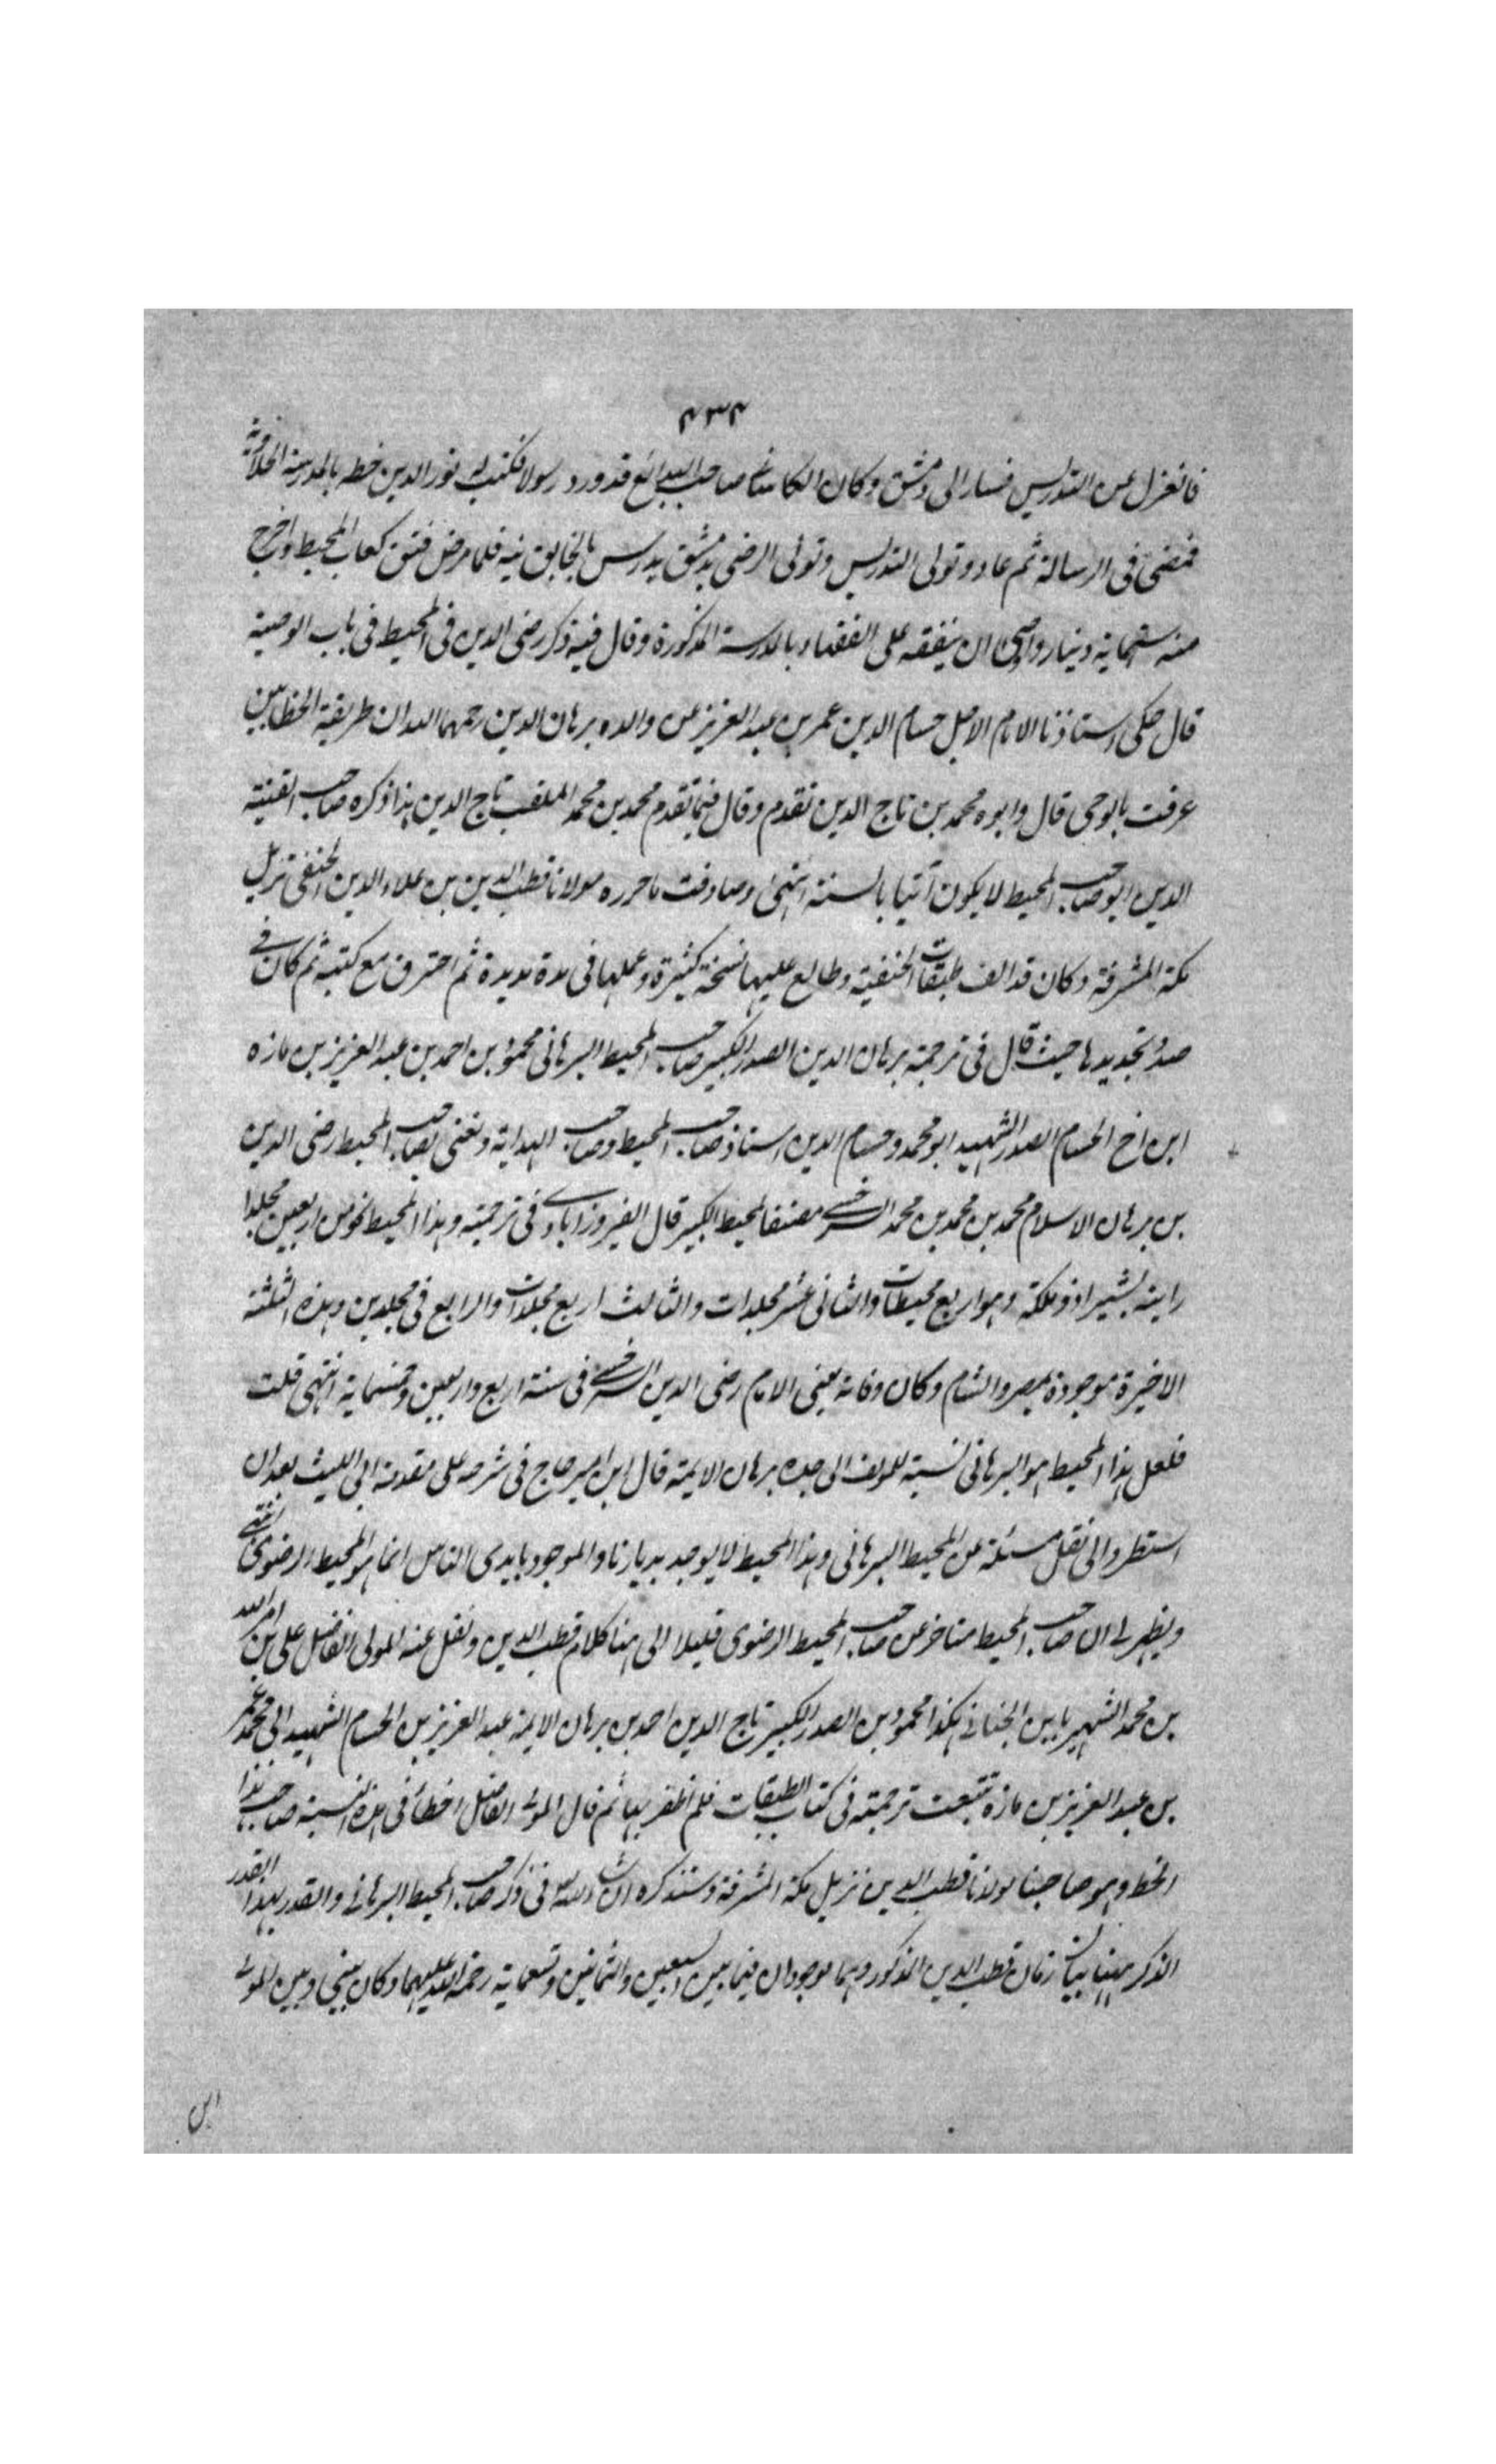 ٤٣٤
فانعزل عن التدريس فسار الى دمشق وكان الكاساني صاحب البدائع قد ورد رسولا فكتب له نور الدين خطه بالمدرسة الحلاوية
فمضى فى الرسالة ثم عاد وتولى التدريس وتولى الرضى بدمشق تدريس بالخاتونية فلما مرض فتق كعاب المحيط واخرج
منه ستماية دينار واوصى ان ينفقه على الفقهاء بالمدرسة المذكورة وقال فيه ذكر رضى الدين فى المحيط فى باب الوصية
قال حكى استاذنا الامام الاجل حسام الدين عمر بن عبد العزيز عن والده برهان الدين رحمهما الله ان طريقة الخطايين
عرفت بالوحى قال وابوه محمد بن تاج الدين تقدم وقال فيما تقدم محمد بن محمد الملقب تاج الدين هذا ذكره صاحب القنية
الدين ابو صاحب المحيط لا يكون آتيا بالسنة انتهى وصادفت ما حرره مولانا قطب الدين بن علاء الدين الحنفى نزيل
مكة المشرفة وكان قد الف طبقات الحنفية وطالع عليها نسخة كثيرة وعملها فى مدة مديدة ثم احترق مع كتبه ثم كان فى
صدد تجديدها حيث قال فى ترجمة برهان الدين الصدر الكبير صاحب المحيط البرهانى محمود بن احمد بن عبد العزيز بن مازه
ابن اخ الحسام الصدر الشهيد ابو محمد وحسام الدين استاذ صاحب المحيط وصاحب الهداية ونعنى بصاحب المحيط رضى الدين
بن برهان الاسلام محمد بن محمد بن محمد السرخسى مصنف المحيط الكبير قال الفيروزابادى فى ترجمته وهذا المحيط نحو من اربعين مجلدا
رايته بشيراز ومكة وهو اربع محيطات والثانى عشر مجلدات والثالث اربع مجلدات والرابع فى مجلدين وهذه الثلثة
الاخيرة موجودة بمصر والشام وكان وفاته يعنى الامام رضى الدين السرخسى فى سنة اربع واربعين وخمسماية انتهى قلت
فلعل هذا المحيط هو البرهانى نسبة للمولف الى جده برهان الايمة قال ابن امير حاج فى شرحه على مقدمة ابى الليث بعد ان
استطرد الى نقل مسئلة عن المحيط البرهانى وهذا المحيط لا يوجد بديارنا والموجود بايدى الناس انما هو المحيط الرضوى انتهى
ويظهر لى ان صاحب المحيط متاخر عن صاحب المحيط الرضوى قليلا الى هنا كلام قطب الدين ونقل عنه المولى الفاضل على بن امر الله
بن محمد الشهير بابن الحنائى هكذا محمود بن الصدر الكبير تاج الدين احمد بن برهان الايمة عبد العزيز بن الحسام الشهيد ابى محمد عمر
بن عبد العزيز بن مازه تتبعت ترجمته فى كتاب الطبقات فلم اظفر بها ثم قال المولى الفاضل اخطأ فى هذه النسبة صاحب هذا
الخط وهو صاحبنا مولانا قطب الدين نزيل مكة المشرفة وستذكره ان شاء الله فى ذكر صاحب المحيط البرهانى والقدر بهذا القدر
الذكر ههنا بيان زمان قطب الدين المذكور وهما موجودان فيما بين السبعين والثمانين وتسعماية رحمة الله عليهما وكان بينى وبين المولى
ابن